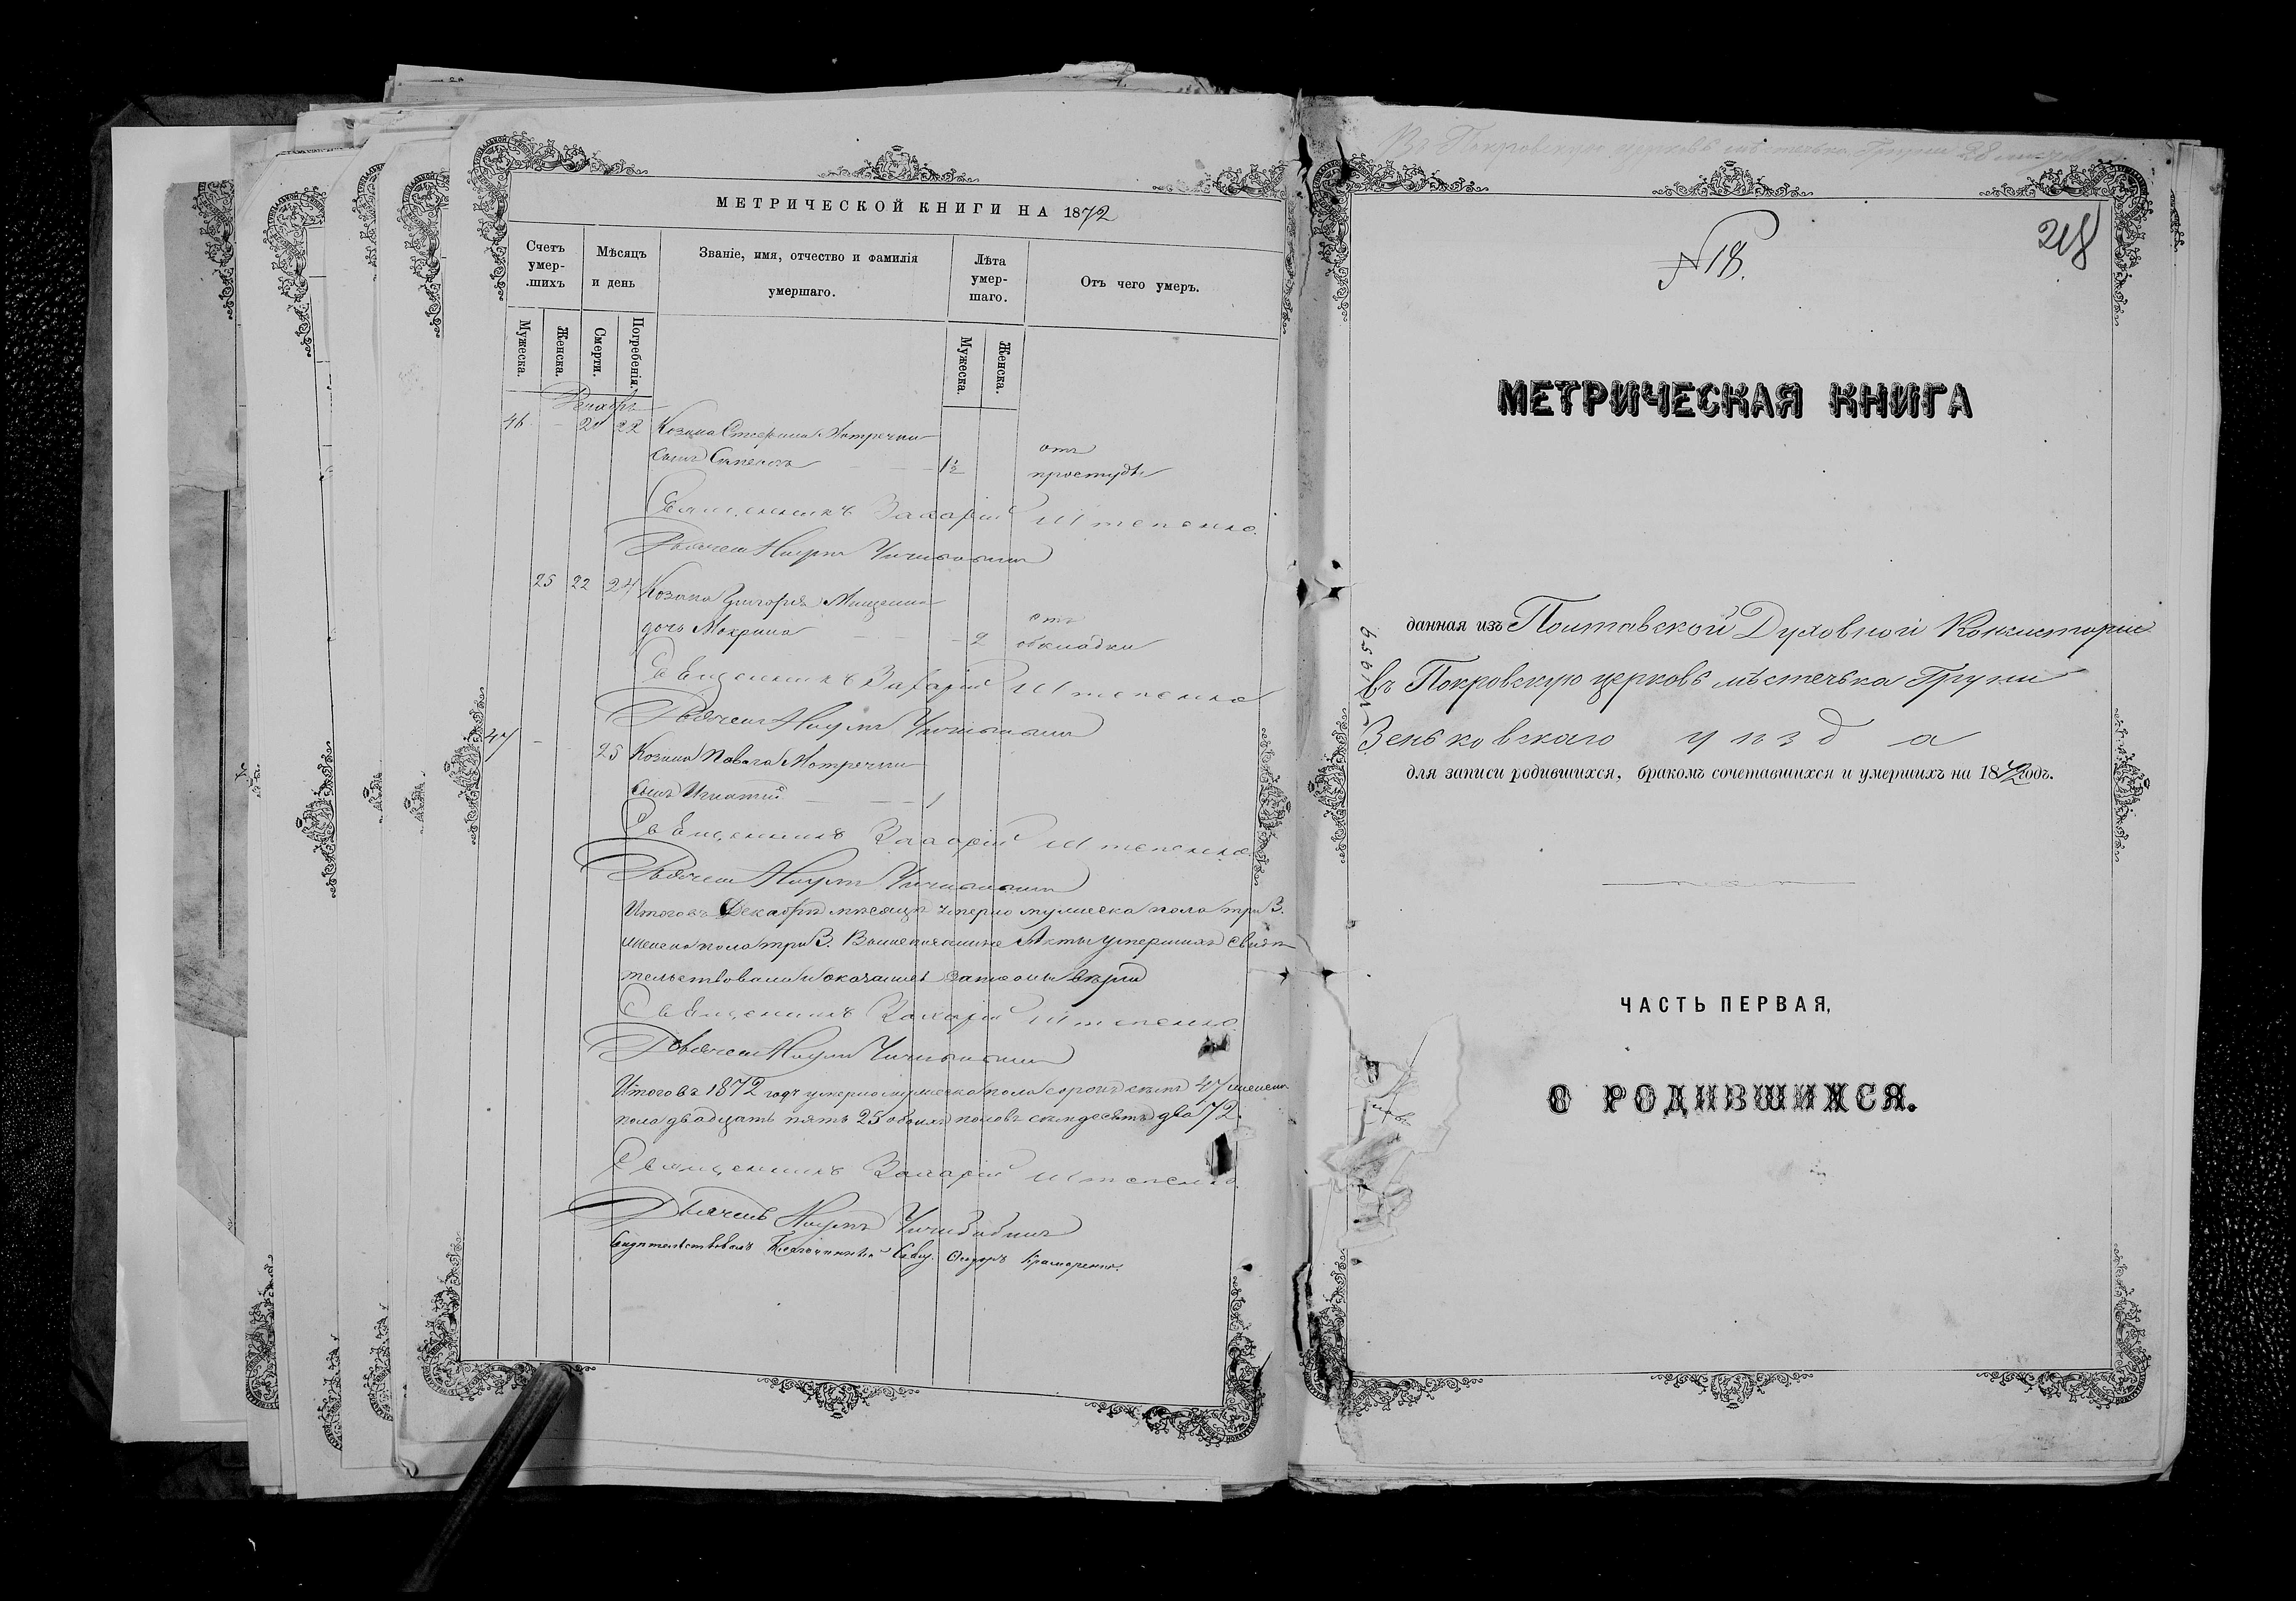 МЕТРИЧЕСКОЙ КНИГИ НА 1872
Счетъ умер-шихъ
Мѣсяцъ и день
Званіе, имя, отчество и фамилія умершаго.
Лѣта умер-шаго.
Отъ чего умеръ.
Мужеска.
Женска.
Смерти.
Погребенія.
Мужеска.
Женска.
Декабрь
46 - 21 22 Козака Стефана
сынъ 1½ отъ простуды
Священникъ Захарій Штепенко.
Дьячекъ Наумъ
25 22 24 Козака Григорія Мищенка
дочь Макрина 2 отъ обкладки
Священникъ Захарій Штепенко
Дьячекъ Наумъ
47 - 25 Козака Павла
сынъ Игнатій 1
Священникъ Захарій Штепенко.
Дьячекъ Наумъ
Итого въ Декабрѣ мѣсяцѣ умерло мужеска пола три 3.
женска пола три 3. Акты умершихъ свидѣ-
тельствовали и вѣрны
Священникъ Захарій Штепенко.
Дьячекъ Наумъ
Итого въ 1872 годѣ умерло мужеска пола сорокъ семь 47 женска
пола двадцать пять 25 обоихъ половъ семдесятъ два 72.
Священникъ Захарій Штепенко.
Дьячекъ Наумъ
Свидѣтельствовалъ Благочинный Свящ.
Въ Покровскую церковь мѣстечка Груни
218
№ 18.
МЕТРИЧЕСКАЯ КНИГА
данная изъ Полтавской Духовной Консисторіи
въ Покровскую церковь мѣстечка Груни
Зеньковскаго уѣзда
для записи родившихся, бракомъ сочетавшихся и умершихъ на 1872 годъ.
ЧАСТЬ ПЕРВАЯ,
О РОДИВШИХСЯ.